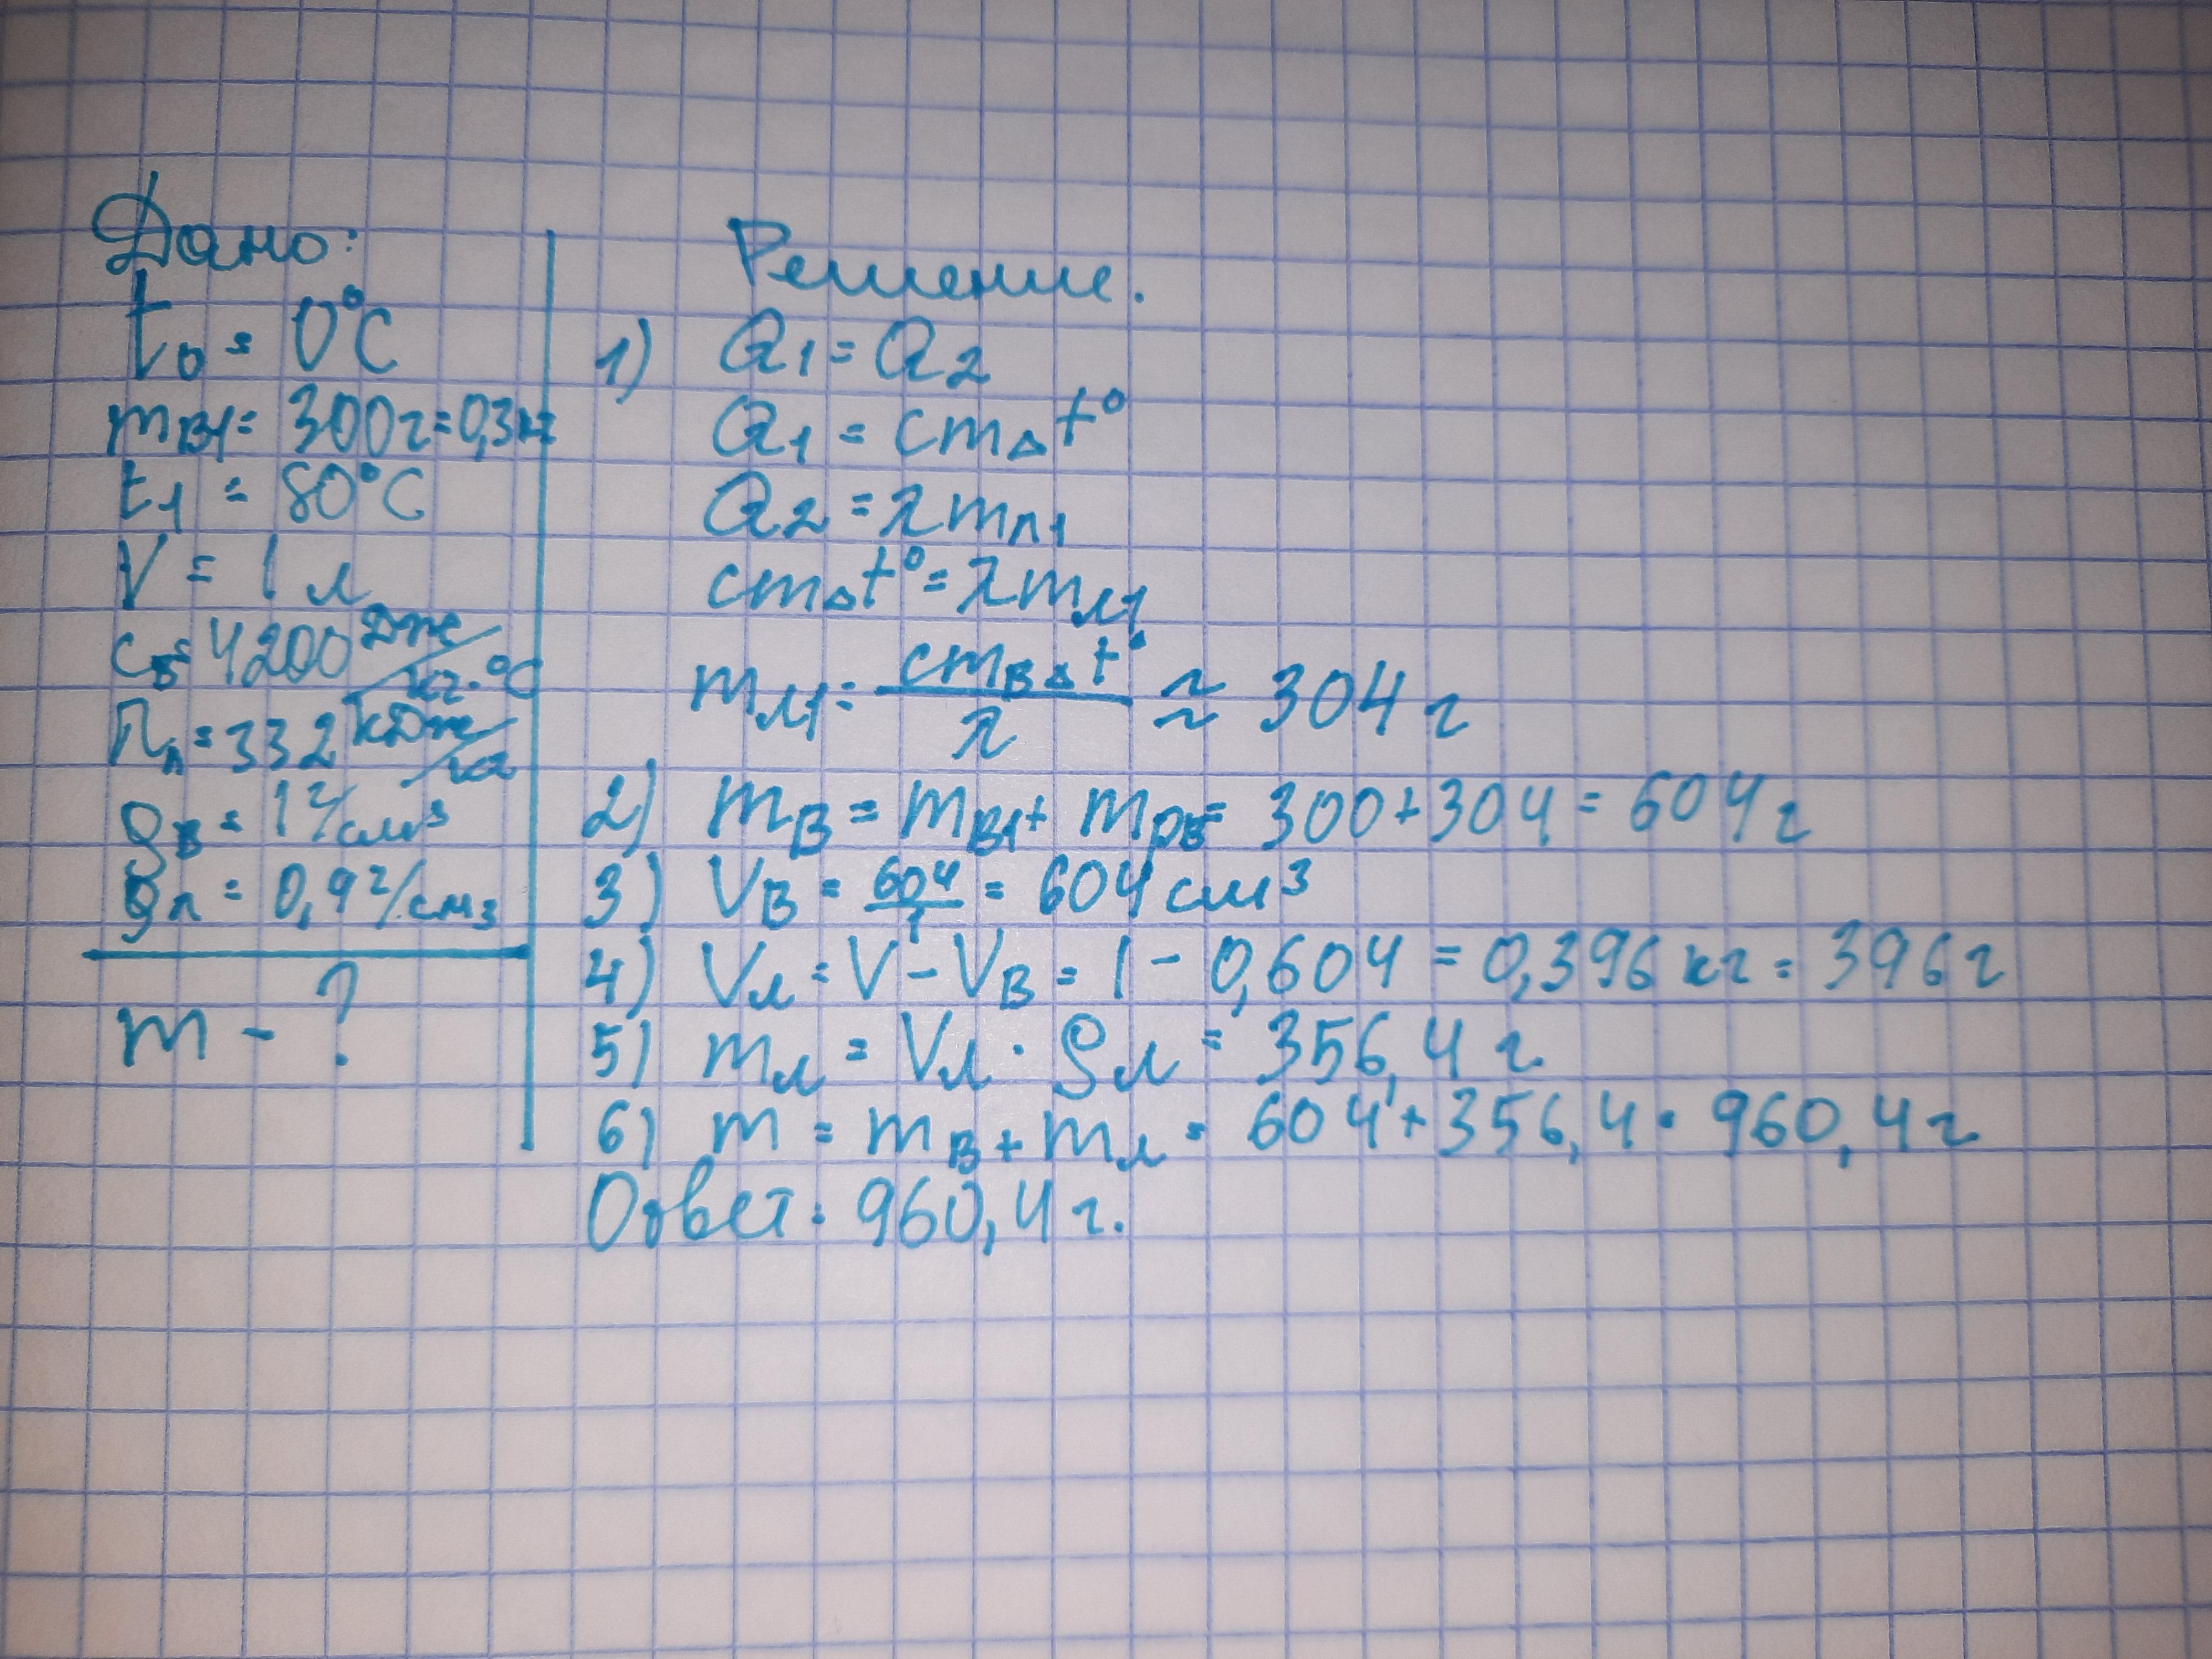 Дано:
t₀ = 0°C
mв1 = 300г = 0,3кг
t₁ = 80°C
V = 1 л
cв = 4200 Дж/кг·°C
λл = 332 кДж/кг
ρв = 1 г/см³
ρл = 0,9 г/см³
m - ?
Решение.
1) Q₁ = Q₂
Q₁ = cm△t°
Q₂ = λmл1
cm△t° = λmл1
mл1 = cmв△t°/λ ≈ 304 г
2) mв = mв1 + mрв = 300 + 304 = 604 г
3) Vв = 604/1 = 604 см³
4) Vл = V - Vв = 1 - 0,604 = 0,396 кг = 396 г
5) mл = Vл · ρл = 356,4 г.
6) m = mв + mл = 604 + 356,4 = 960,4 г
Ответ: 960,4 г.